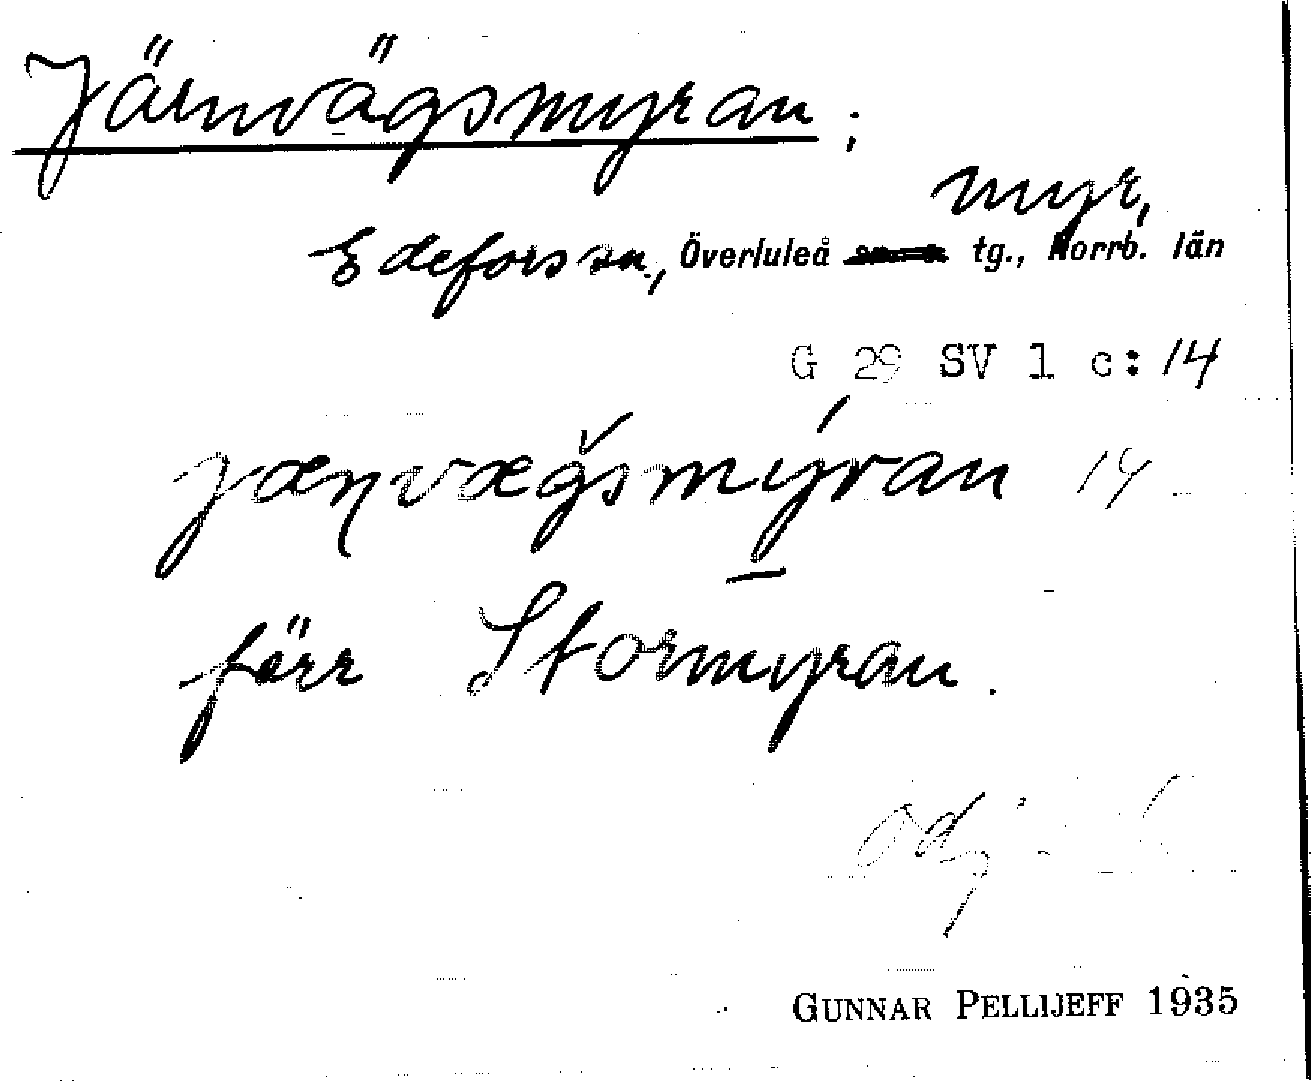 Järnvägsmyran;
myr,
Edefors sn, Överluleå tg., Norrb. län
G 29 SV 1 c: 14
jæɳvæǧsmýran 14
förr Stormyran.
GUNNAR PELLIJEFF 1935